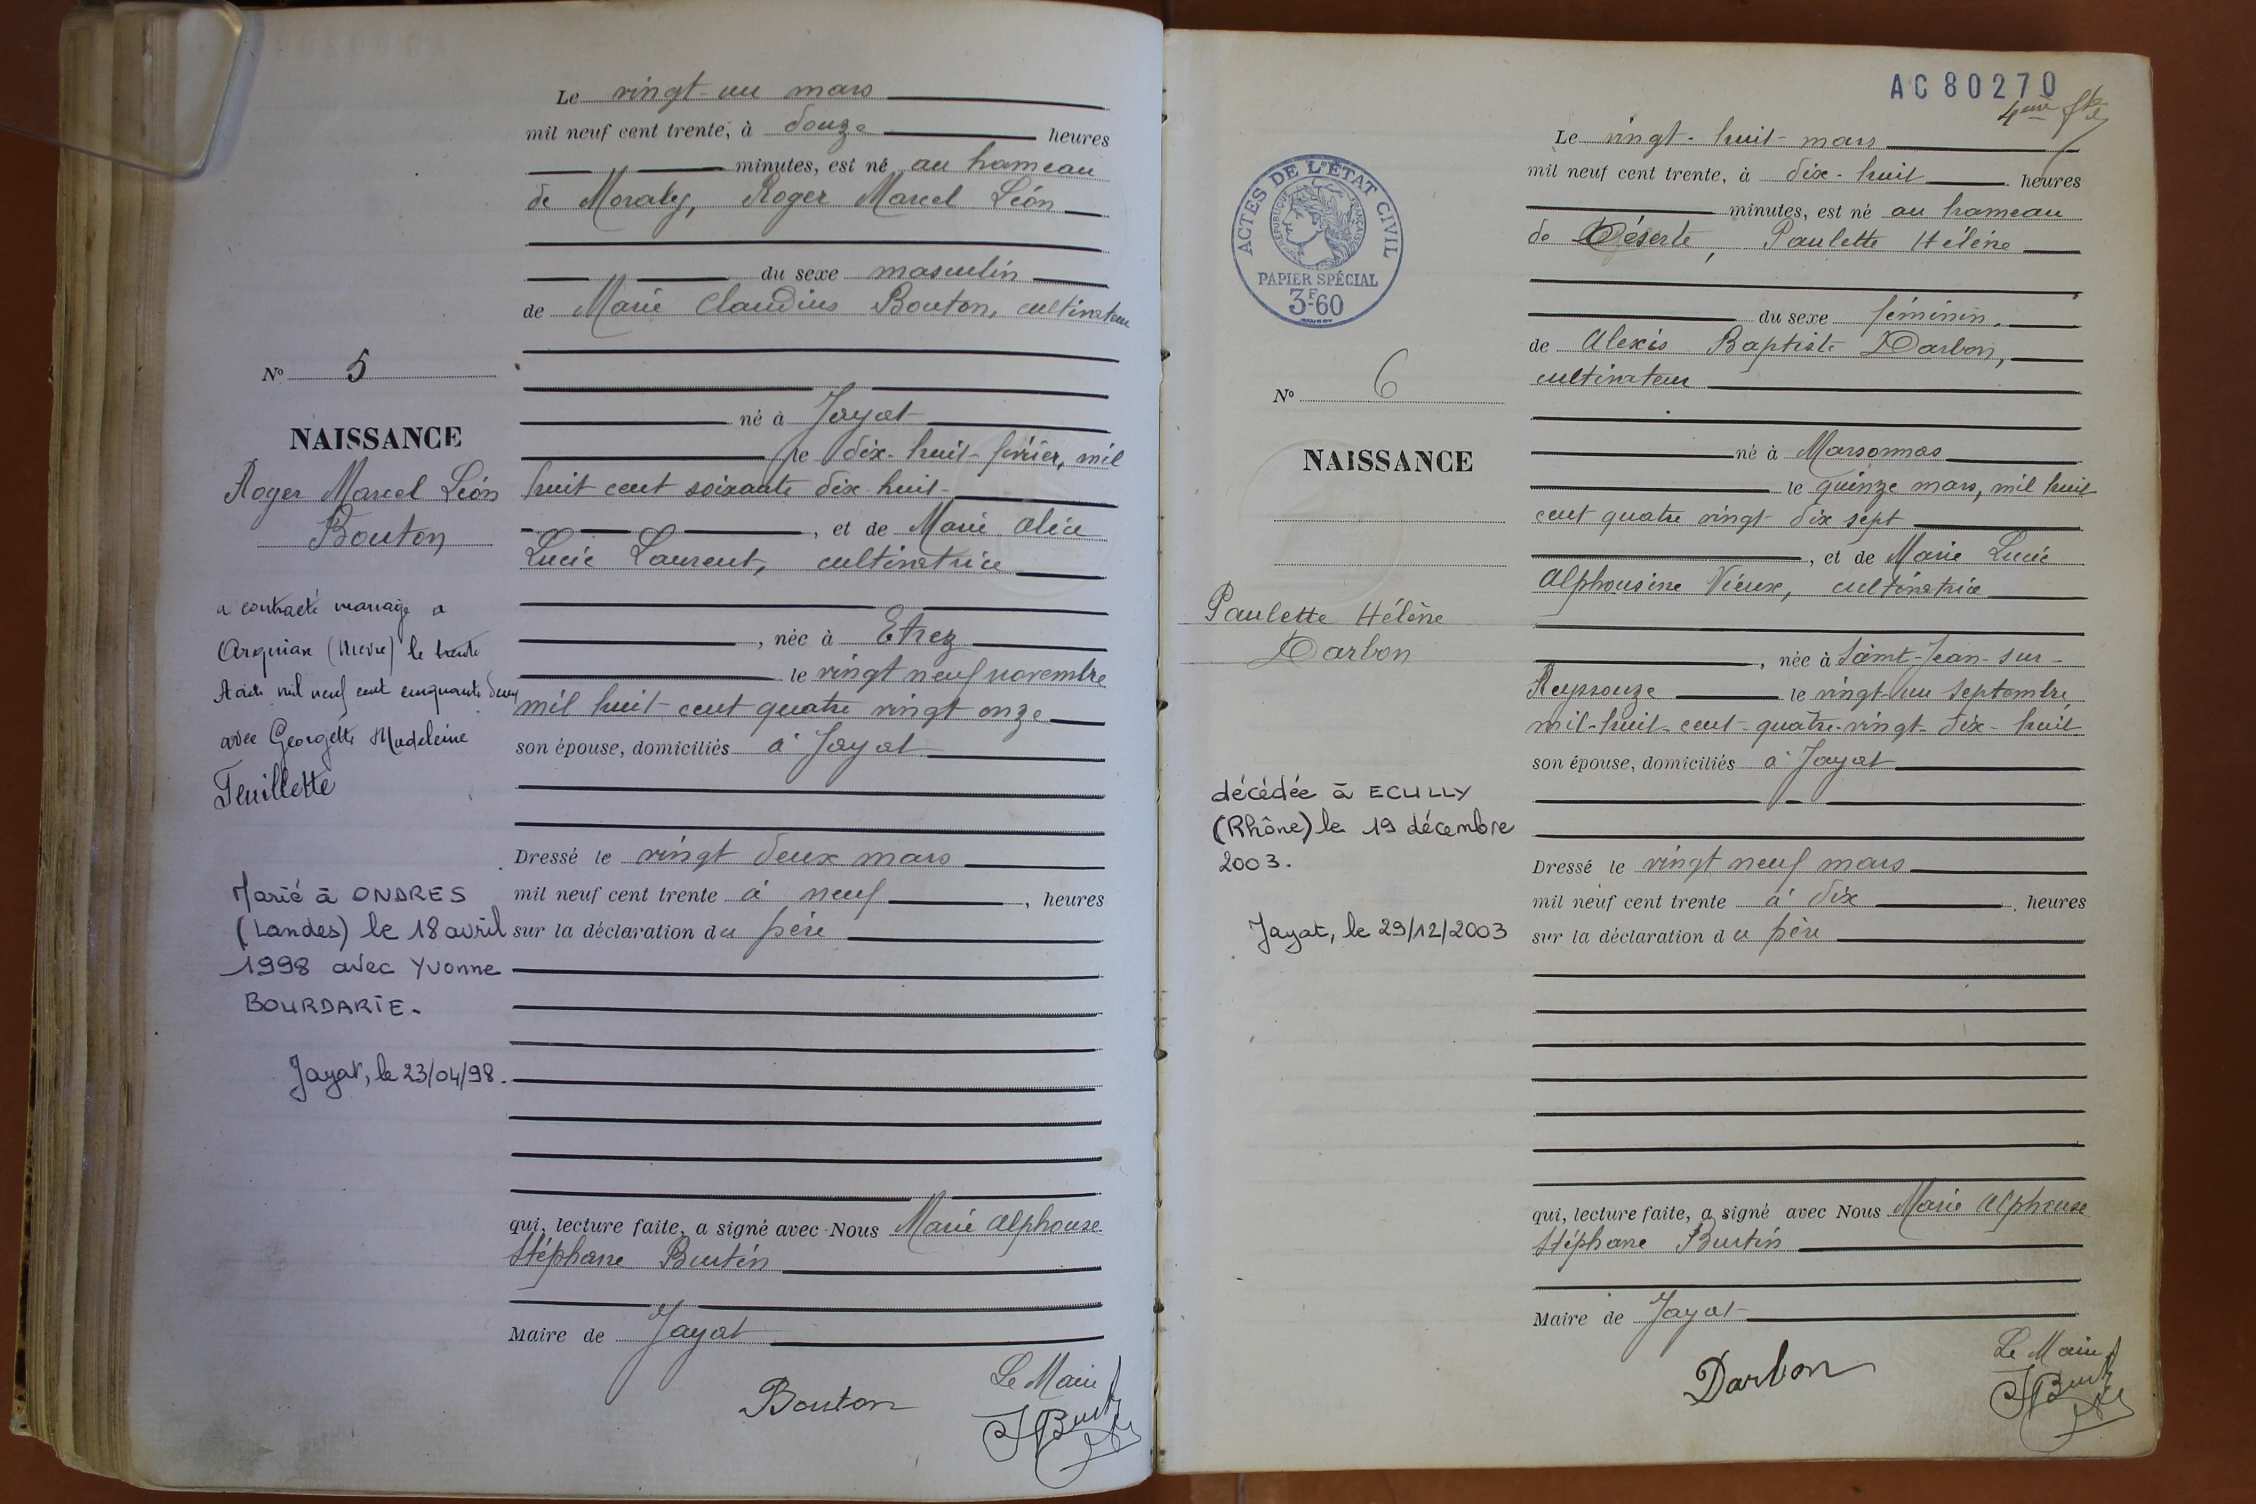 Le vingt-un mars
mil neuf cent trente, à douze heures
minutes, est né au hameau
de Moraly, Roger Marcel Léon
du sexe masculin
de Marie Claudius Bouton, cultivateur
né à Jayat
le dix-huit février, mil
huit cent soixante dix-huit
, et de Marie Alice
Lucie Laurent, cultivatrice
, née à Etrez
le vingt neuf novembre
mil huit cent quatre vingt onze
son épouse, domiciliés à Jayat
Dressé le vingt deux mars
mil neuf cent trente à neuf , heures
sur la déclaration du père
qui, lecture faite, a signé avec Nous Marie Alphonse
Stéphane Burtin
Maire de Jayat
Bouton
Le Maire
Nº 5
NAISSANCE
Roger Marcel Léon
Bouton
a contracté mariage a
(Nièvre) le trente
Août mil neuf cent cinquante deux
avec Georgette Madeleine
Feuillette
Marié à ONDRES
(Landes) le 18 avril
1998 avec Yvonne
BOURDARIE.
Jayat, le 23/04/98.
AC80270
4ème
ACTES DE L'ÉTAT CIVIL
RÉPUBLIQUE FRANÇAISE
PAPIER SPÉCIAL
3F60
Le vingt-huit mars
mil neuf cent trente, à dix-huit heures
minutes, est né au hameau
de Déserte, Paulette Hélène
du sexe féminin,
de Alexis Baptiste Darbon,
cultivateur
né à Marsonnas
le quinze mars, mil huit
cent quatre vingt dix sept
, et de Marie Lucie
Alphonsine Vieux, cultivatrice
, née à Saint-Jean-sur-
Reyssouze le vingt-un septembre
mil-huit-cent-quatre-vingt-dix-huit
son épouse, domiciliés à Jayat
Dressé le vingt neuf mars
mil neuf cent trente à dix heures
sur la déclaration du père
qui, lecture faite, a signé avec Nous Marie Alphonse
Stéphane Burtin
Maire de Jayat
Darbon
Le Maire
Nº 6
NAISSANCE
Paulette Hélène
Darbon
décédée à ECULLY
(Rhône) le 19 décembre
2003.
Jayat, le 29/12/2003